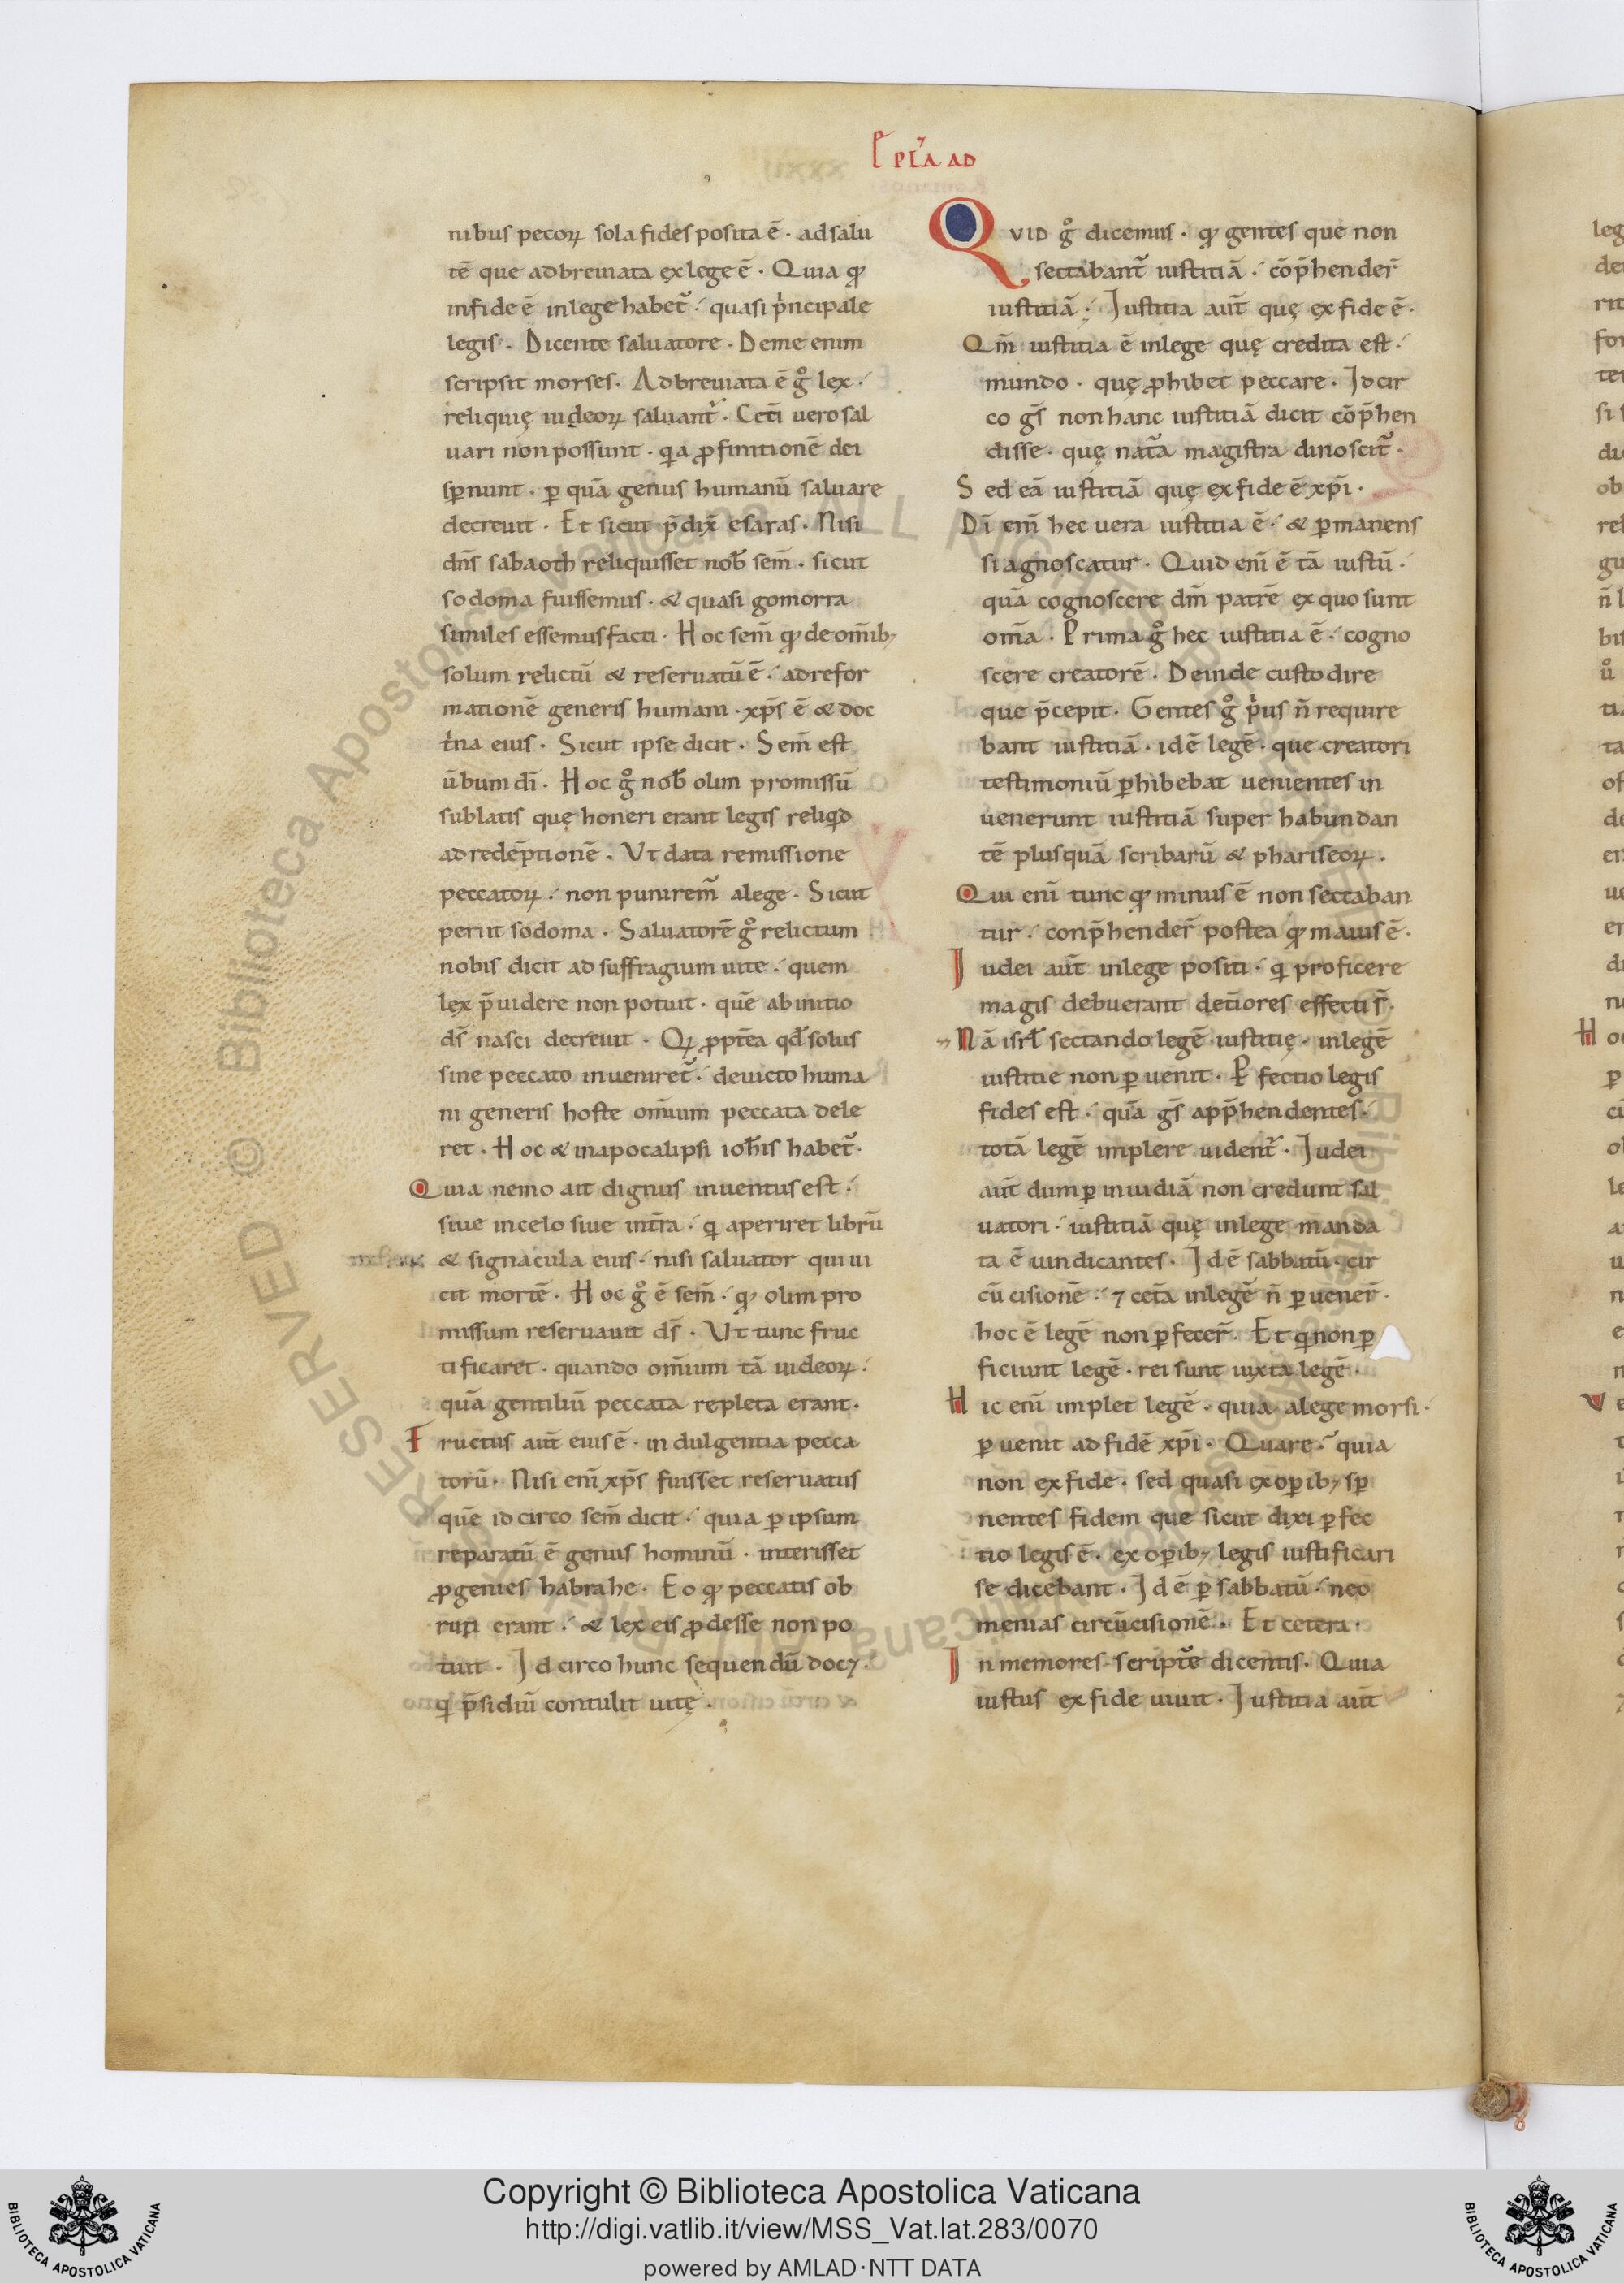 Epl̃a ad
nibus pecoꝝ sola fides posita ē · ad salu
tē que adbreuiata ex lege ē · Quia qđ
in fide ē in lege habet᷑ · quasi p̍ncipale
legis · Dicente saluatore · De me enim
scripsit moyses · Adbreuiata ē gͦ lex ·
reliquię iudeoꝝ saluant᷑ · Cet̃i uero sal
uari non possunt · qa ꝓfinitionē dei
spernunt · ꝑ quā genus humanū saluare
decreuit · Et sicut p̄dix̄ esaias · Nisi
dn̄s sabaoth reliquisset nob̄ sem̄ · sicut
sodoma fuissemus · & quasi gomorra
similes essemus facti · Hoc sem̄ qđ de om̄ib;
solum relictū & reseruatū ē · ad refor
mationē generis humani · xp̄s ē & doc
t̍na eius · Sicut ipse dicit · Sem̄ est
ūbum dī · Hoc gͦ nob̄ olim promissū
sublatis quę honeri erant legis reliqd
ad redēptionē · Vt data remissione
peccatoꝝ · non punirem᷑ a lege · Sicut
periit sodoma · Saluatorē gͦ relictum
nobis dicit ad suffragium uite · quem
lex p̄uidere non potuit · quē ab initio
ds̄ nasci decreuit · Qꝝ ꝓpt̄ea qđ solus
sine peccato inueniret᷑ · deuicto huma
ni generis hoste om̄ium peccata dele
ret · Hoc & in apocalipsi ioh̄is habet᷑ ·
Quia nemo ait dignus inuentus est ·
siue in celo siue in t̄ra · q aperiret librū
& signacula eius · nisi saluator qui ui
cit mortē · Hoc gͦ ē sem̄ · qđ olim pro
missum reseruauit ds̄ · Vt tunc fruc
tificaret · quando om̄ium tā iudeoꝝ ·
quā gentiliū peccata repleta erant ·
Fructus aut̄ eius ē · indulgentia pecca
torū · Nisi enī xp̄s fuisset reseruatus
quē idcirco sem̄ dicit · quia ꝑ ipsum
reparatū ē genus hominū · interisset
ꝓgenies habrahe · Eo qđ peccatis ob
ruti erant · & lex eis ꝓdesse non po
tuit · Idcirco hunc sequendū doc&
q p̄sidiū contulit uitę ·
QVID gͦ dicemus · qđ gentes que non
sectabant᷑ iustitiā · cōp̄hender̄
iustitiā · Iustitia aut̄ quę ex fide ē ·
Qm̄ iustitia ē in lege quę credita est ·
mundo · quę ꝓhibet peccare · Idcir
co gs̄ non hanc iustitiā dicit cōp̄hen
disse · quę nat᷑a magistra dinoscit᷑ ·
Sed eā iustitiā quę ex fide ē xp̄i ·
Dī enī hec uera iustitia ē · & ꝑmanens
si agnoscatur · Quid enī ē tā iustū ·
quā cognoscere dm̄ patrē ex quo sunt
om̄a · Prima gͦ hec iustitia ē · cogno
scere creatorē · Deinde custodire
que p̄cepit · Gentes gͦ p̍us n̄ require
bant iustitiā · id ē legē · que creatori
testimoniū ꝑhibebat uenientes in
uenerunt iustitiā super habundan
tē plusquā scribarū & phariseoꝝ ·
Qui enī tunc qđ minus ē non sectaban
tur · conp̄hender̄ postea qđ maius ē ·
Iudei aut̄ in lege positi · q proficere
magis debuerant det̄iores effecti s̄ ·
Nā isrl̄ sectando legē iustitię · in legē
iustitie non ꝑuenit · Ꝑfectio legis
fides est · quā gs̄ app̄hendentes ·
totā legē implere uident᷑ · Iudei
aut̄ dum ꝑ inuidiā non credunt sal
uatori · iustitiā quę in lege manda
ta ē uindicantes · Id ē sabbatū · cir
cū cisionē · ⁊ cet̄a in legē n̄ ꝑuener̄ ·
hoc ē legē non ꝑfecer̄ · Et q non ꝑ
ficiunt legē · rei sunt iuxta legē ·
Hic enī implet legē · quia a lege moysi ·
ꝑuenit ad fidē xp̄i · Quare · quia
non ex fide · sed quasi ex oꝑib; sꝑ
nentes fidem que sicut dixi ꝑfec
tio legis ē · ex oꝑib; legis iustificari
se dicebant · Id ē ꝑ sabbatū · neo
menias circūcisionē · Et cetera ·
Inmemores script᷑e dicentis · Quia
iustus ex fide uiuit · Iustitia aut̄
Copyright © Biblioteca Apostolica Vaticana
http://digi.vatlib.it/view/MSS_Vat.lat.283/0070
powered by AMLAD·NTT DATA
BIBLIOTECA APOSTOLICA VATICANA
BIBLIOTECA APOSTOLICA VATICANA